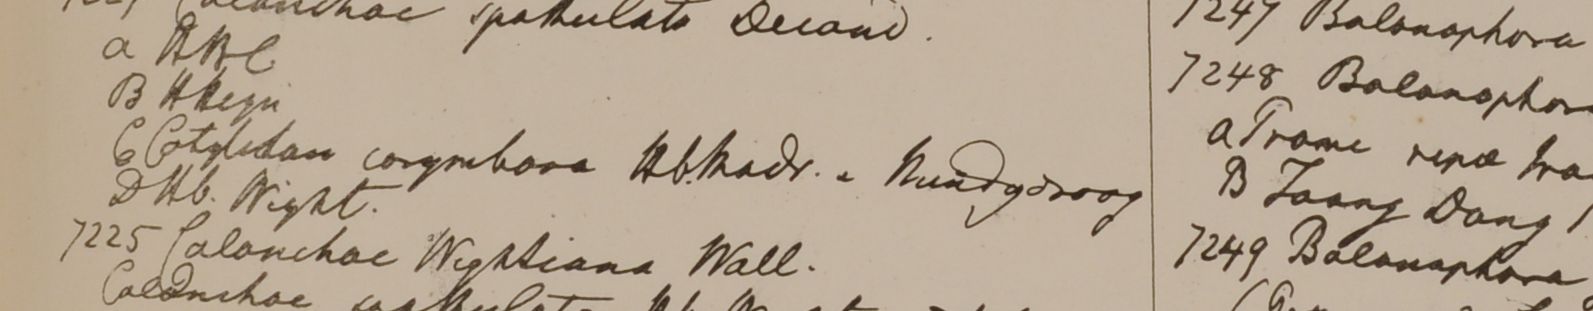 Calanchoe spathulata Decand.
a HBC
B HHeyn
C Cotyledon corymbosa Hb. Madr. Nundydroog
D Hb. Wight.
7225 Calanchoe Wightiana Wall.
Calanchoe spathulata Hb. Wight
7247 Balanophora
7248 Balanophora
a Prome
B Taong Dong
7249 Balanophora